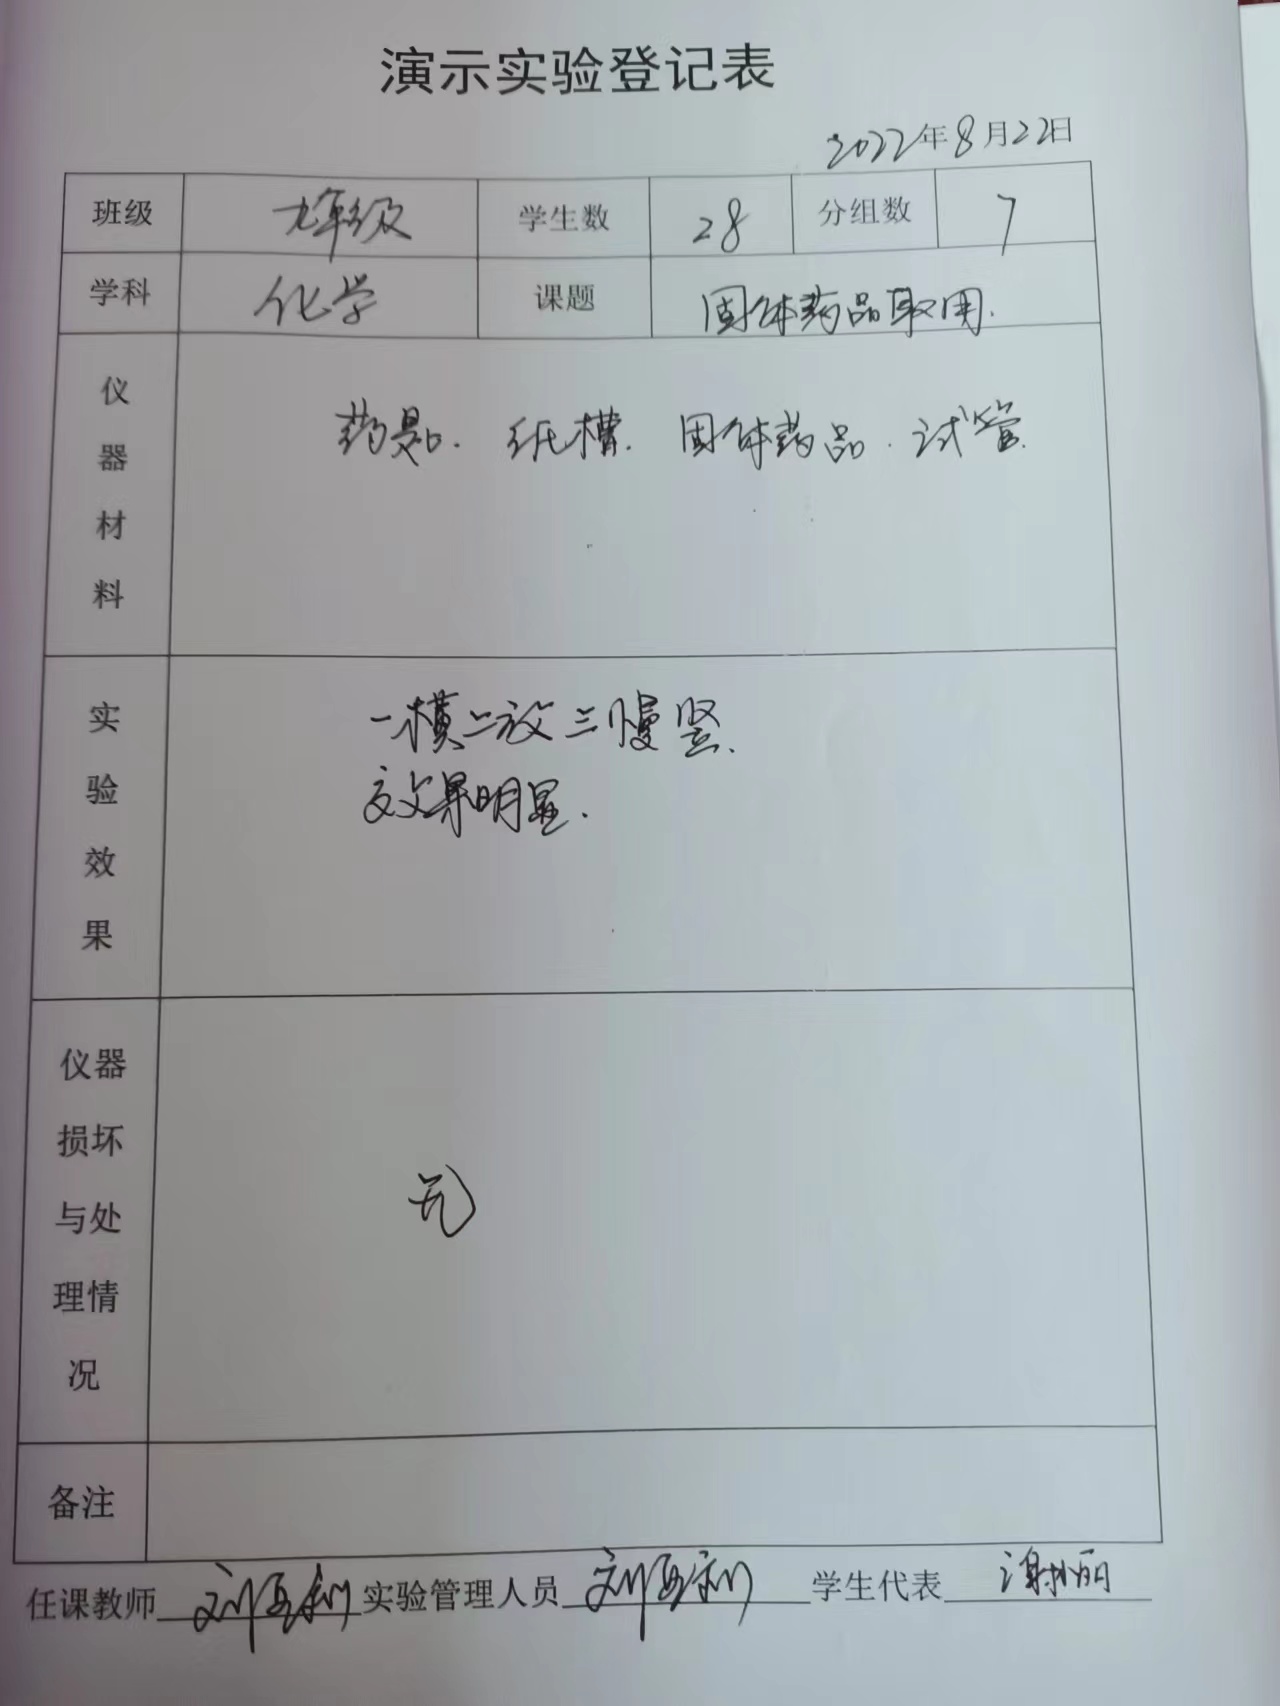 演示实验登记表
2022年8月22日
班级 九年级 学生数 28 分组数 7
学科 化学 课题 固体药品取用.
仪器材料 药匙. 纸槽. 固体药品. 试管.
实验效果 一横二放三慢竖.
效果明显.
仪器损坏与处理情况 无
备注
任课教师 刘 利 实验管理人员 刘 利 学生代表 谢 丽